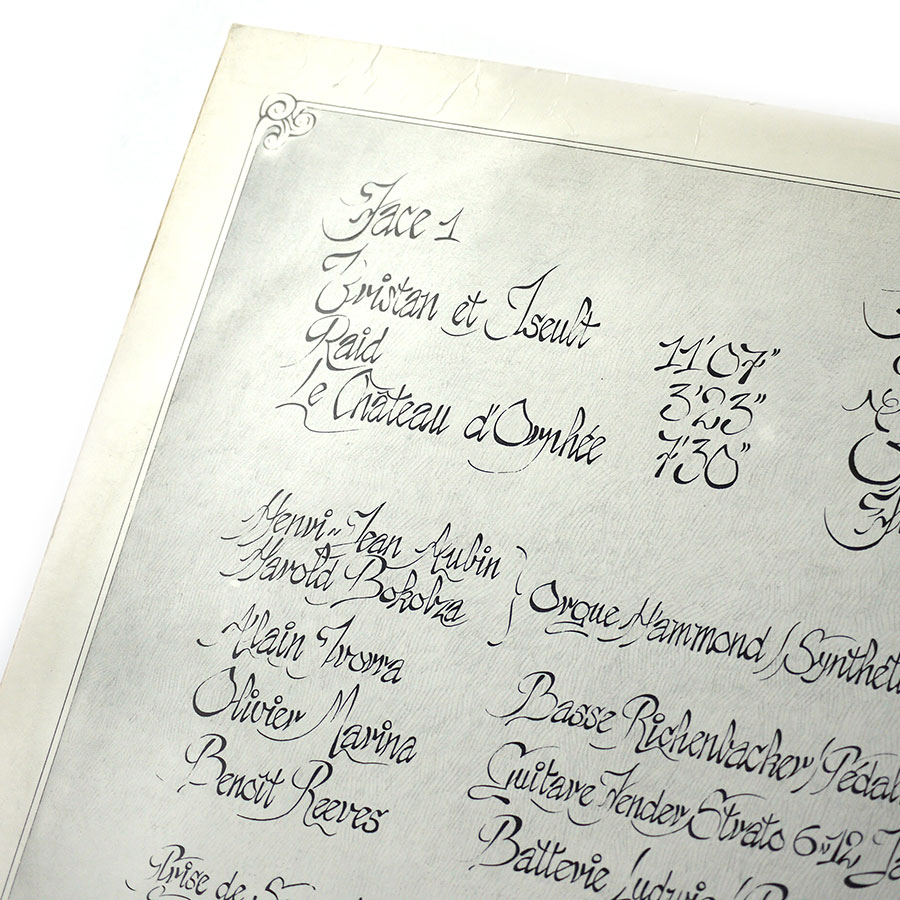 Face 1
Tristan et Iseult 11'07"
Raid 3'23"
Le Château d'Orphée 7'30"
Henri-Jean Aubin
Harold Bokobza
Orgue Hammond/Synthét
Alain Ivorra
Basse Richenbacker/Pédal
Olivier Marina
Guitare Fender Strato 6-12
Benoît Reeves
Batterie Ludwig/
Prise de